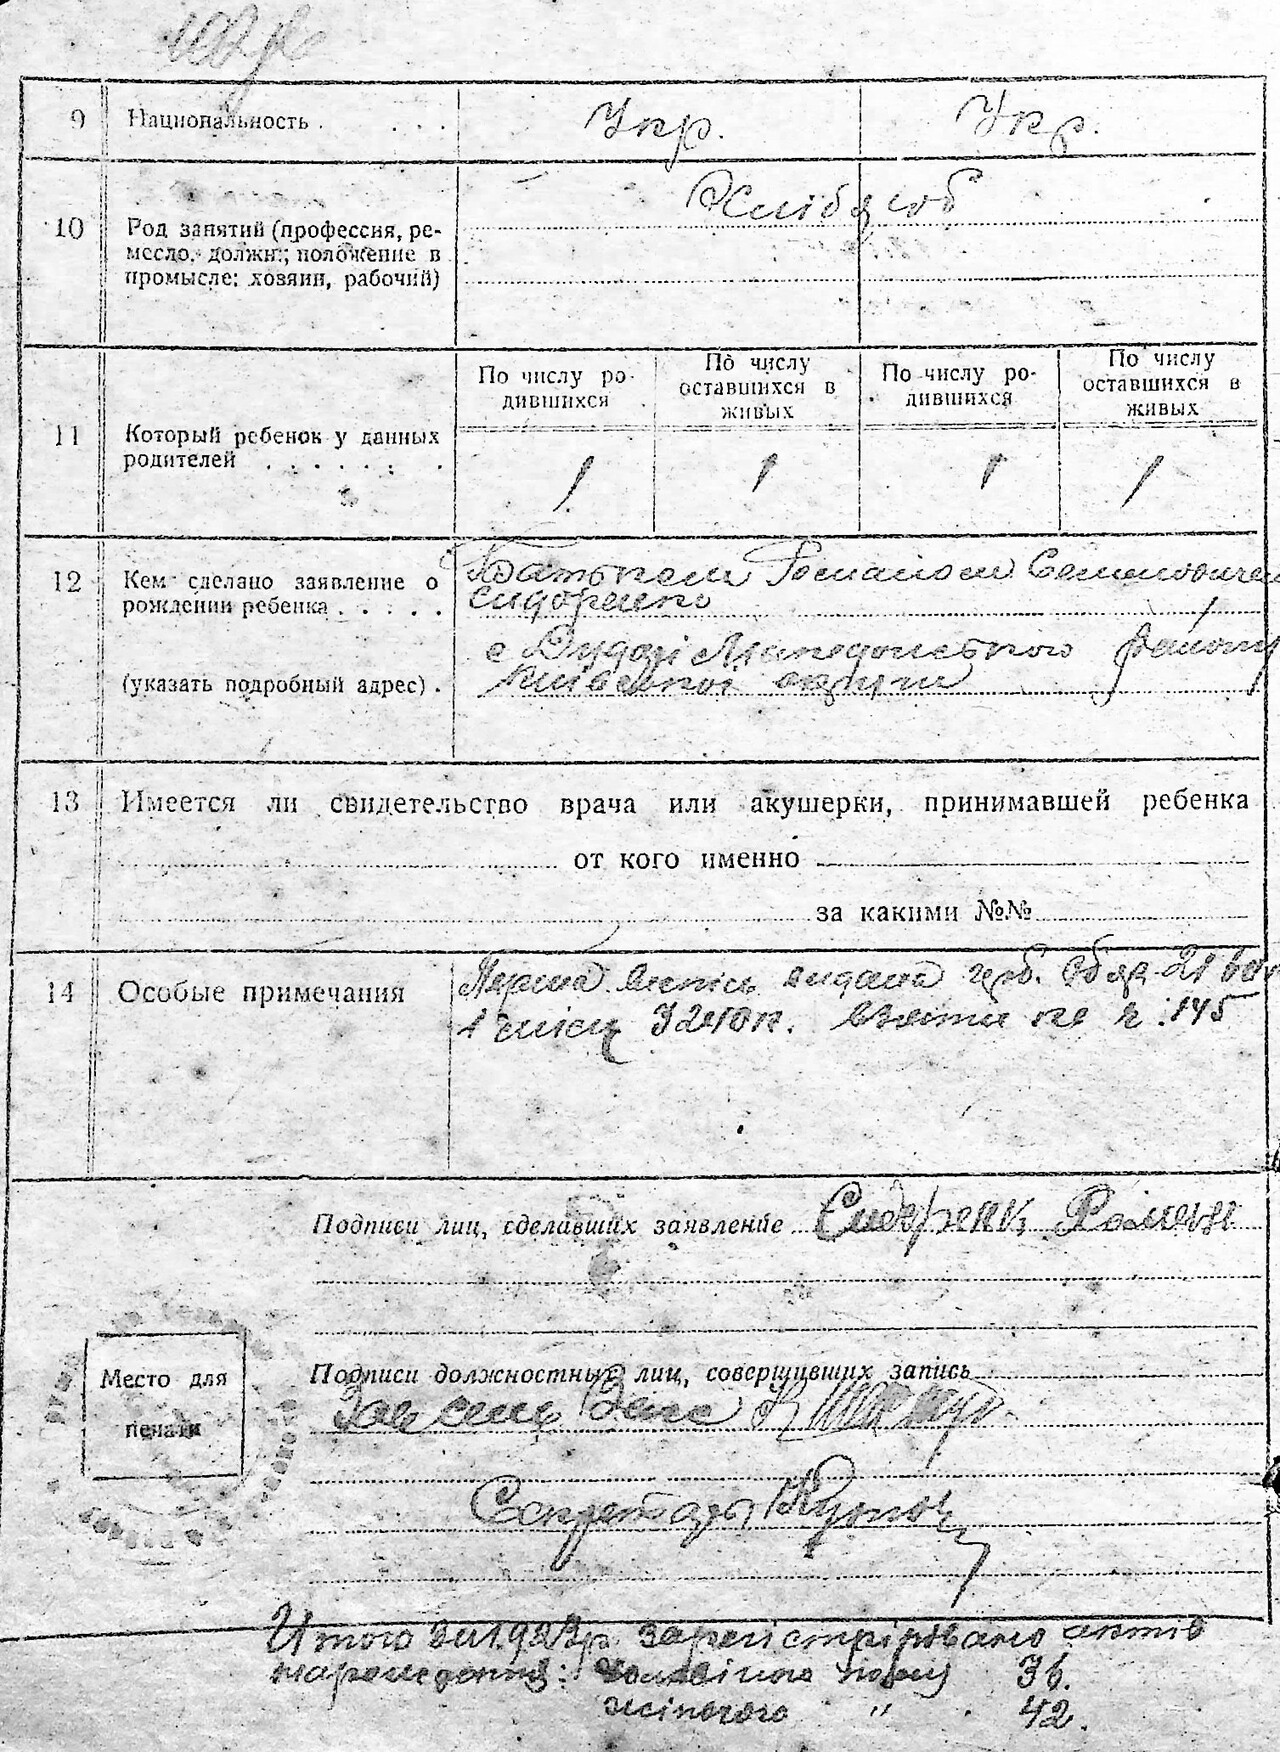 9 Национальность . . . . Укр. Укр.
10 Род занятий (профессия, ре-
месло, должн.; положение в
промысле: хозяин, рабочий)
Хлібороб
По числу ро-
дившихся
По числу
оставшихся в
живых
По числу ро-
дившихся
По числу
оставшихся в
живых
11 Который ребенок у данных
родителей . . . . . . .
1 1 1 1
12 Кем сделано заявление о
рождении ребенка . . . . .
(указать подробный адрес) .
Батьком Романом Семеновичем
Сидоренко
с району
Київської округи
13 Имеется ли свидетельство врача или акушерки, принимавшей ребенка
от кого именно
за какими №№
14 Особые примечания
Перша випись видана 21
240 к. взяти по 145
Подписи лиц, сделавших заявление Сидоренк Роман
Подписи должностных лиц, совершивших запись
Зав
Секретарь
Место для
печати
Итого за 1923 р. зарегістріровано актів
народження: чоловічого полу 36.
жіночого " 42.